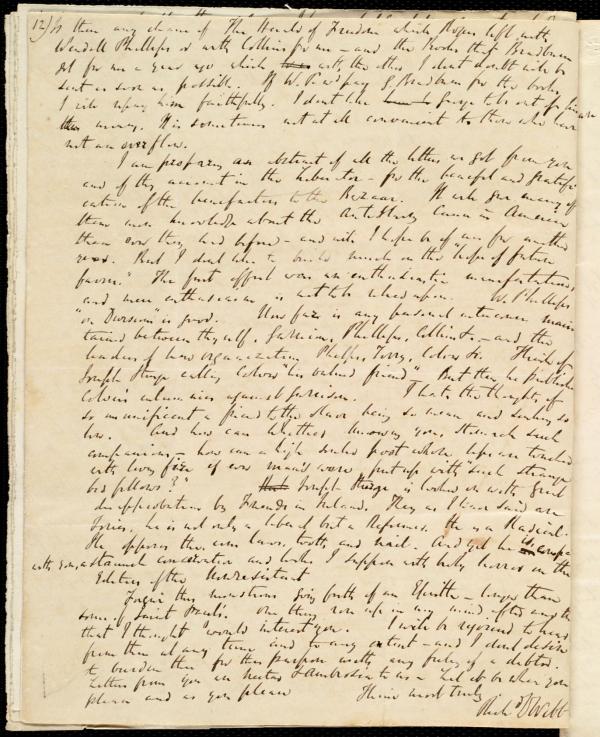 12) Is there any chance of The Herald of Freedom which Rogers left with
Wendell Phillips or with Collins for me – and the Books that Bradburn
got for me a year ago which with the other I dont doubt will be
sent as soon as possible. If W. P. will pay G. Bradburn for the books,
I will repay him faithfully. I dont like George to be out of
money. It is sometimes not at all convenient to those who have
not an overflow.
I am preparing an abstract of all the letters we got from you
and of the account in the Liberator – for the benefit and gratifi-
cation of the benefactors to the Bazaar. It will give many of
them more knowledge about the Anti Slavery Cause in America
than ever they had before – and will I hope be of use for another
year. But I dont like to build much on the "hope of future
favors." The first effort was an enthusiastic manifestation,
and mere enthusiasm is not to be relied upon. W. Phillips
"on Division" is good. How far is any personal intercourse main
tained between thyself, Garrison, Phillips, Collins &c – and the
leaders of new organization Phelps, Torry, Colver &c. Think of
Joseph Sturge calling Colver "his valued friend" But then he published
Colver's calumnies against Garrison. I hate the thoughts of
so magnificent a friend to the slave being so mean and so
low. And how can Whittier such
companions – how can a high souled poet whose lips are touched
with living fire if ever man's were, put up with "such strange
bed fellows?" Joseph Sturge is looked on with great
disapprobation by Friends in Ireland. They as I have said are
Tories, he is not only a liberal but a Reformer. He is a Radical.
He opposes the corn laws, tooth and nail. And yet he is
with you, a staunch conservative and looks I suppose with holy horror on the
Editors of the Nonresistant
Forgive this monstrous long birth of an Epistle – longer than
some of Saint Paul's. One thing rose up in my mind after another
that I thought would interest you. I will be rejoiced to hear
from thee at any time and to any extent – and I dont desire
to burden thee for this purpose with any feeling of a debtor.
Letters from you are to us – Let it be when you
please and as you please Thine most truly
Richd D Webb